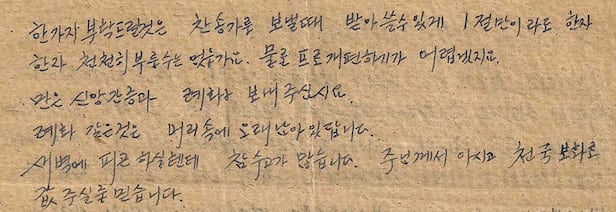 한가지 부탁드릴것은 찬송가를 보낼때 받아쓸수있게 1절만이라도 한자
한자 천천히 부를수는 없는가요. 물론 프로개편하기가 어렵겠지요.
많은 신앙간증과 례화도 보내주십시요.
례화 같은것은 머리속에 오래남아있답니다.
새벽에 피곤하실텐데 참수고가 많습니다. 주님께서 아시고 천국보화로
갚주실줄 믿습니다.